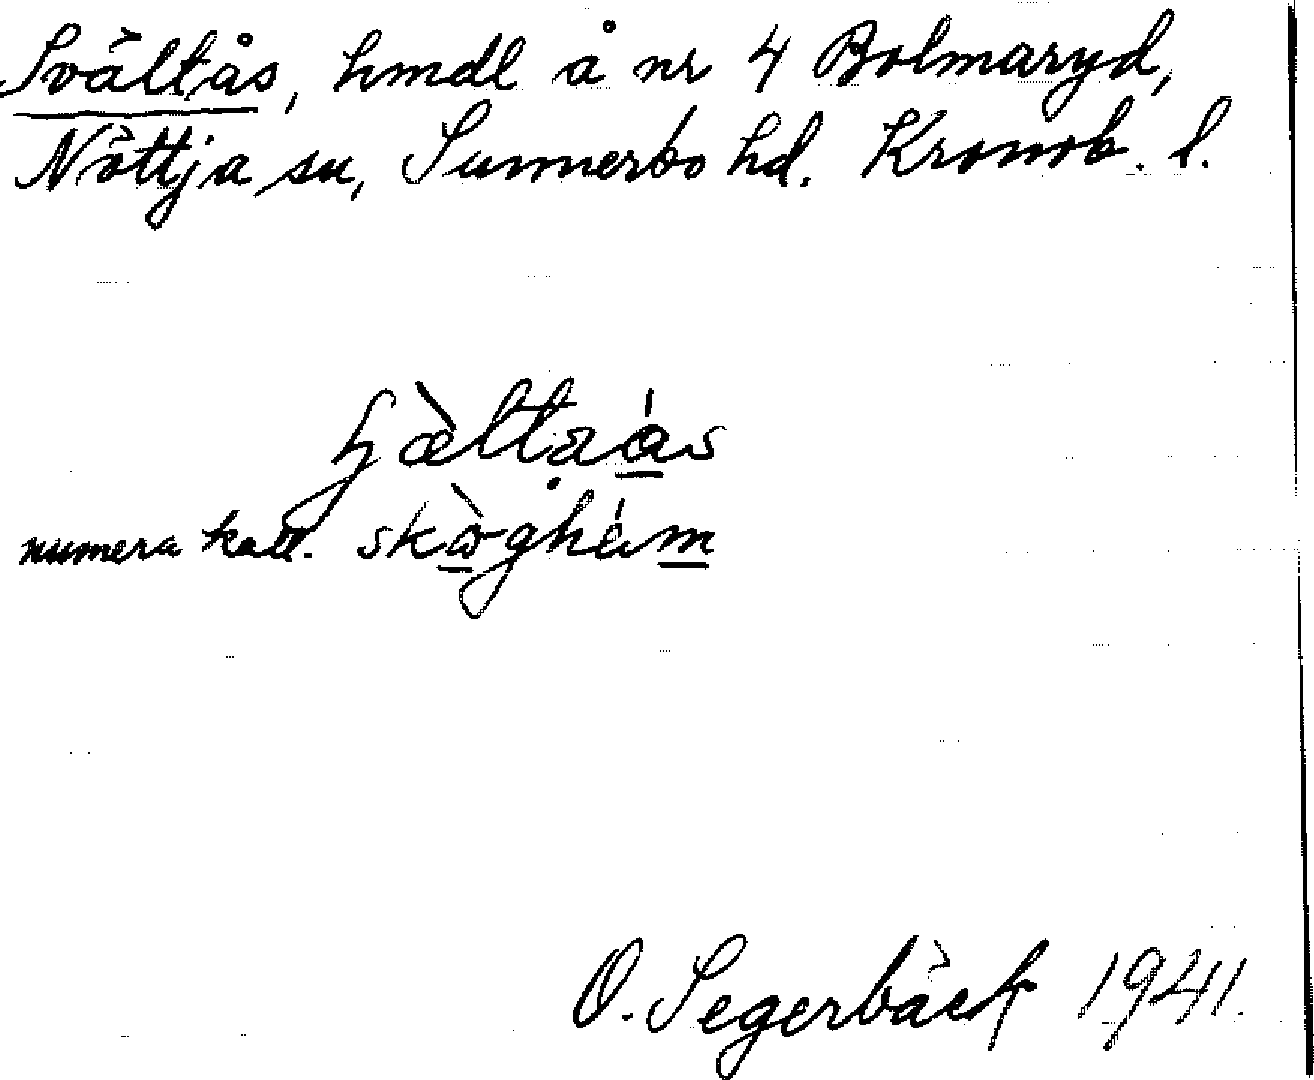 Svältås, hmdl å nr 4 Bolmaryd,
Nöttja sn, Sunnerbo hd. Kronob. l.
numera kall.
O. Segerbäck 1941.